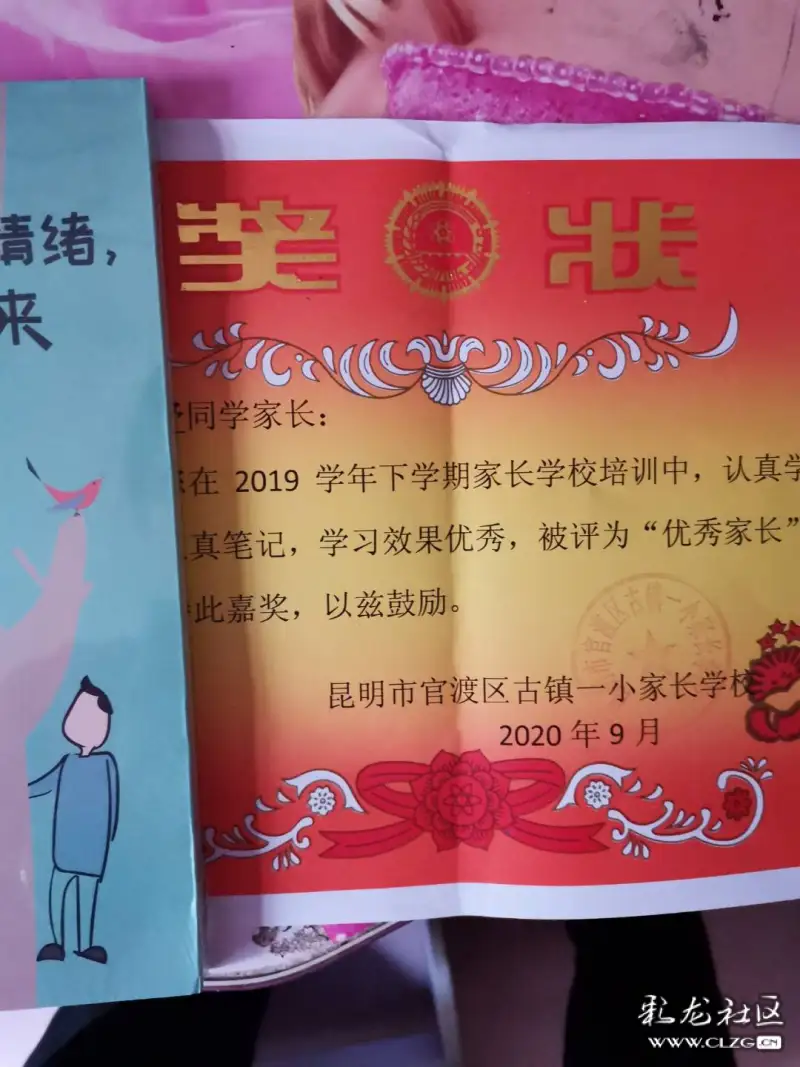 情绪，
来
奖状
同学家长：
在 2019 学年下学期家长学校培训中，认真学
真笔记，学习效果优秀，被评为“优秀家长”
此嘉奖，以兹鼓励。
市官渡区古镇一小家长
昆明市官渡区古镇一小家长学校
2020 年 9 月
彩龙社区
WWW.CLZG.CN